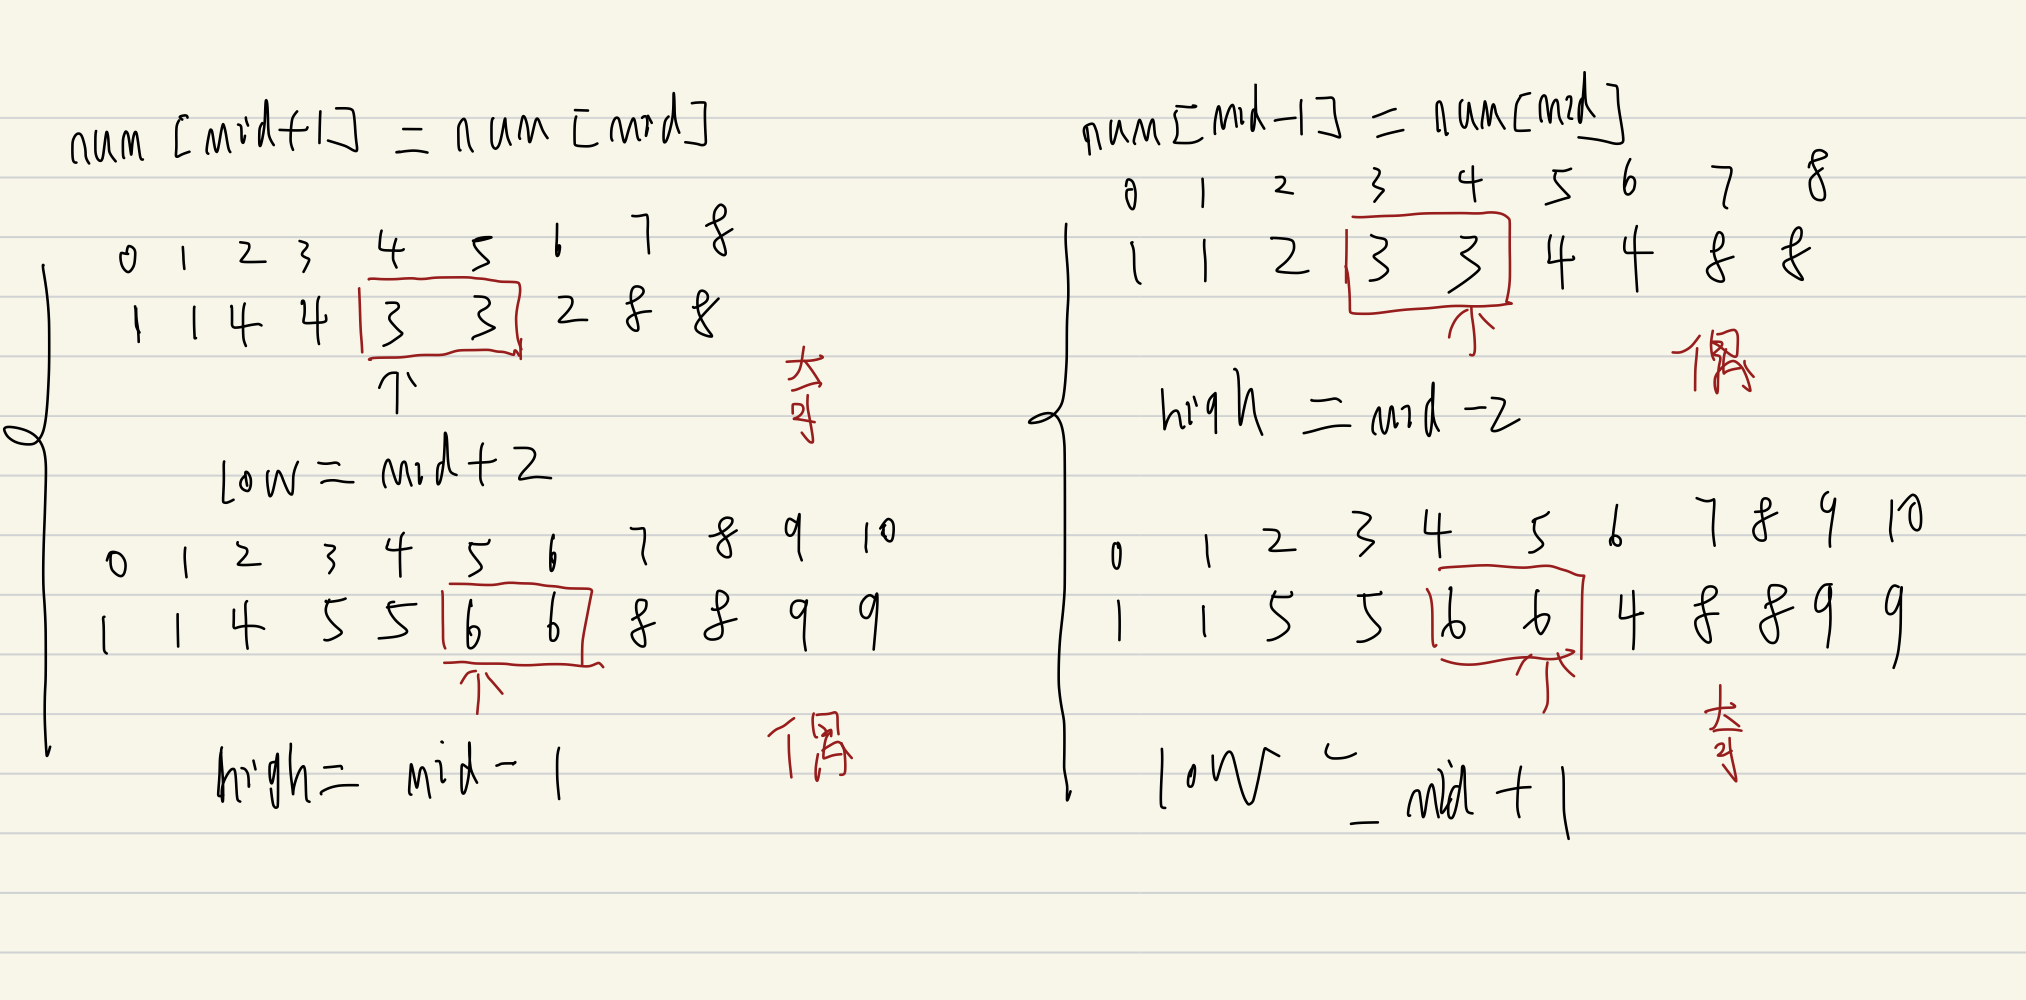 num [mid+1] = num [mid]
0 1 2 3 4 5 6 7 8
1 1 4 4 3 3 2 8 8
奇
low = mid+2
0 1 2 3 4 5 6 7 8 9 10
1 1 4 5 5 6 6 8 8 9 9
偶
high = mid-1
num[mid-1] = num[mid]
0 1 2 3 4 5 6 7 8
1 1 2 3 3 4 4 8 8
偶
high = mid-2
0 1 2 3 4 5 6 7 8 9 10
1 1 5 5 6 6 4 8 8 9 9
奇
low = mid+1